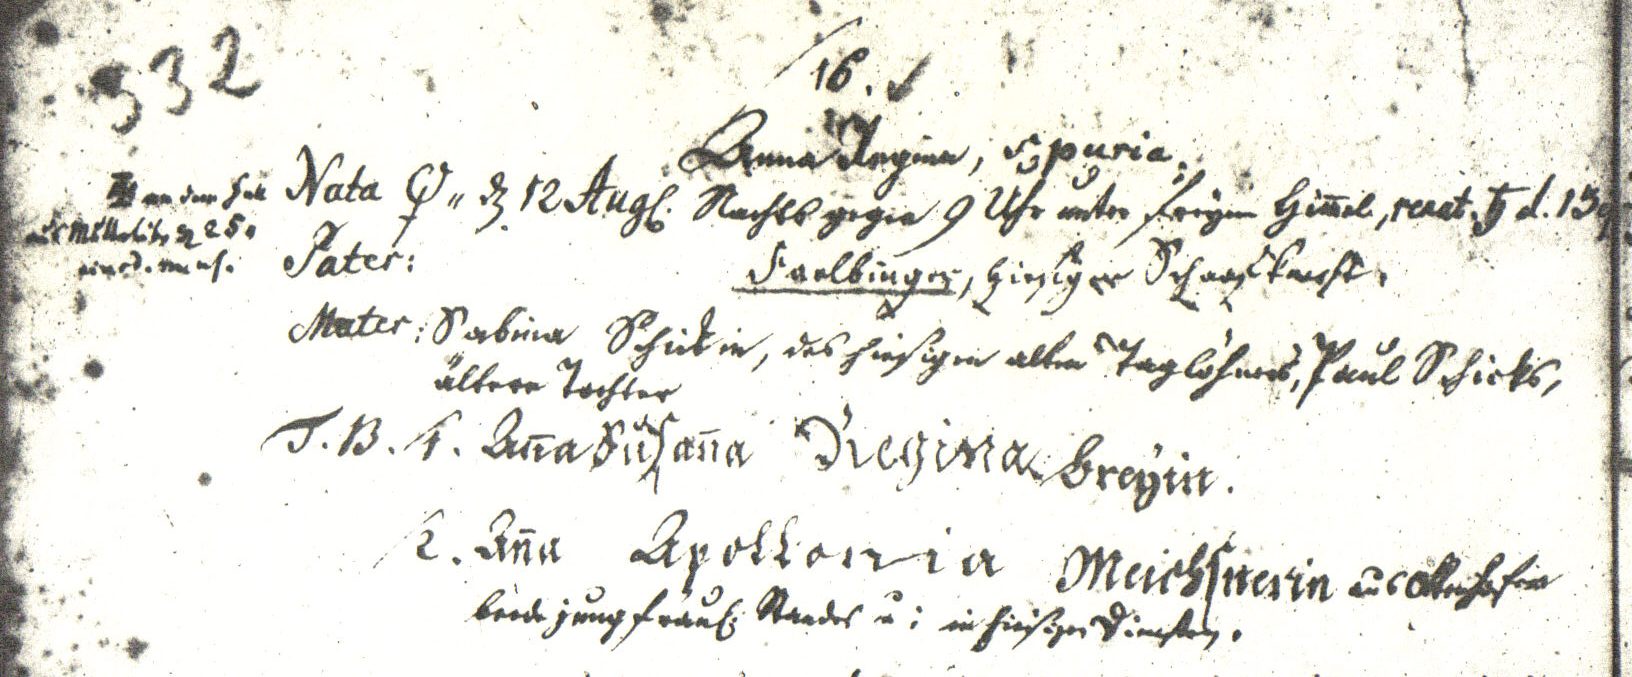 332
16.
Anna Regina, Spuria.
Nata ♀ d. 12 Aug. Nachts gegen 9 Uhr unter freyem Him̄el, renat. ♄ d. 13
Pater: Saalbinger, hiesiger Schaafknecht.
Mater: Sabina Schickin, des hiesigen alten Taglöhners, Paul Schicks,
ältere Tochter
T. B. 1. An̄a Susan̄a Regina Breyin.
2. An̄a Apollonia Meichsnerin aus
beede jungfräul. Standes u: in hiesigen Diensten.